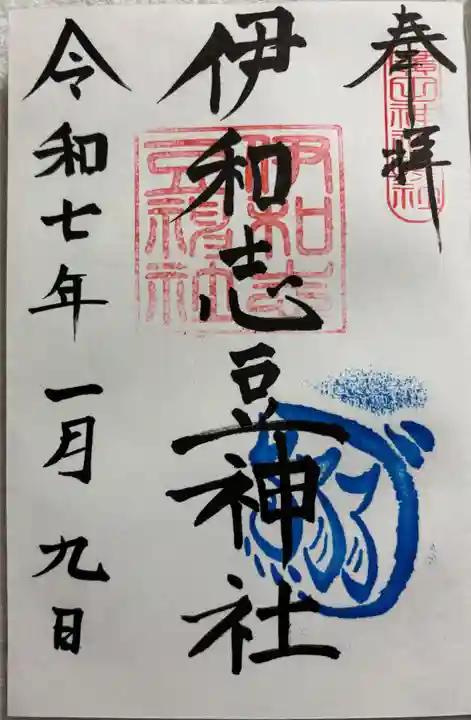 奉拝
伊和志豆神社
伊和志
豆神社
令和七年一月九日